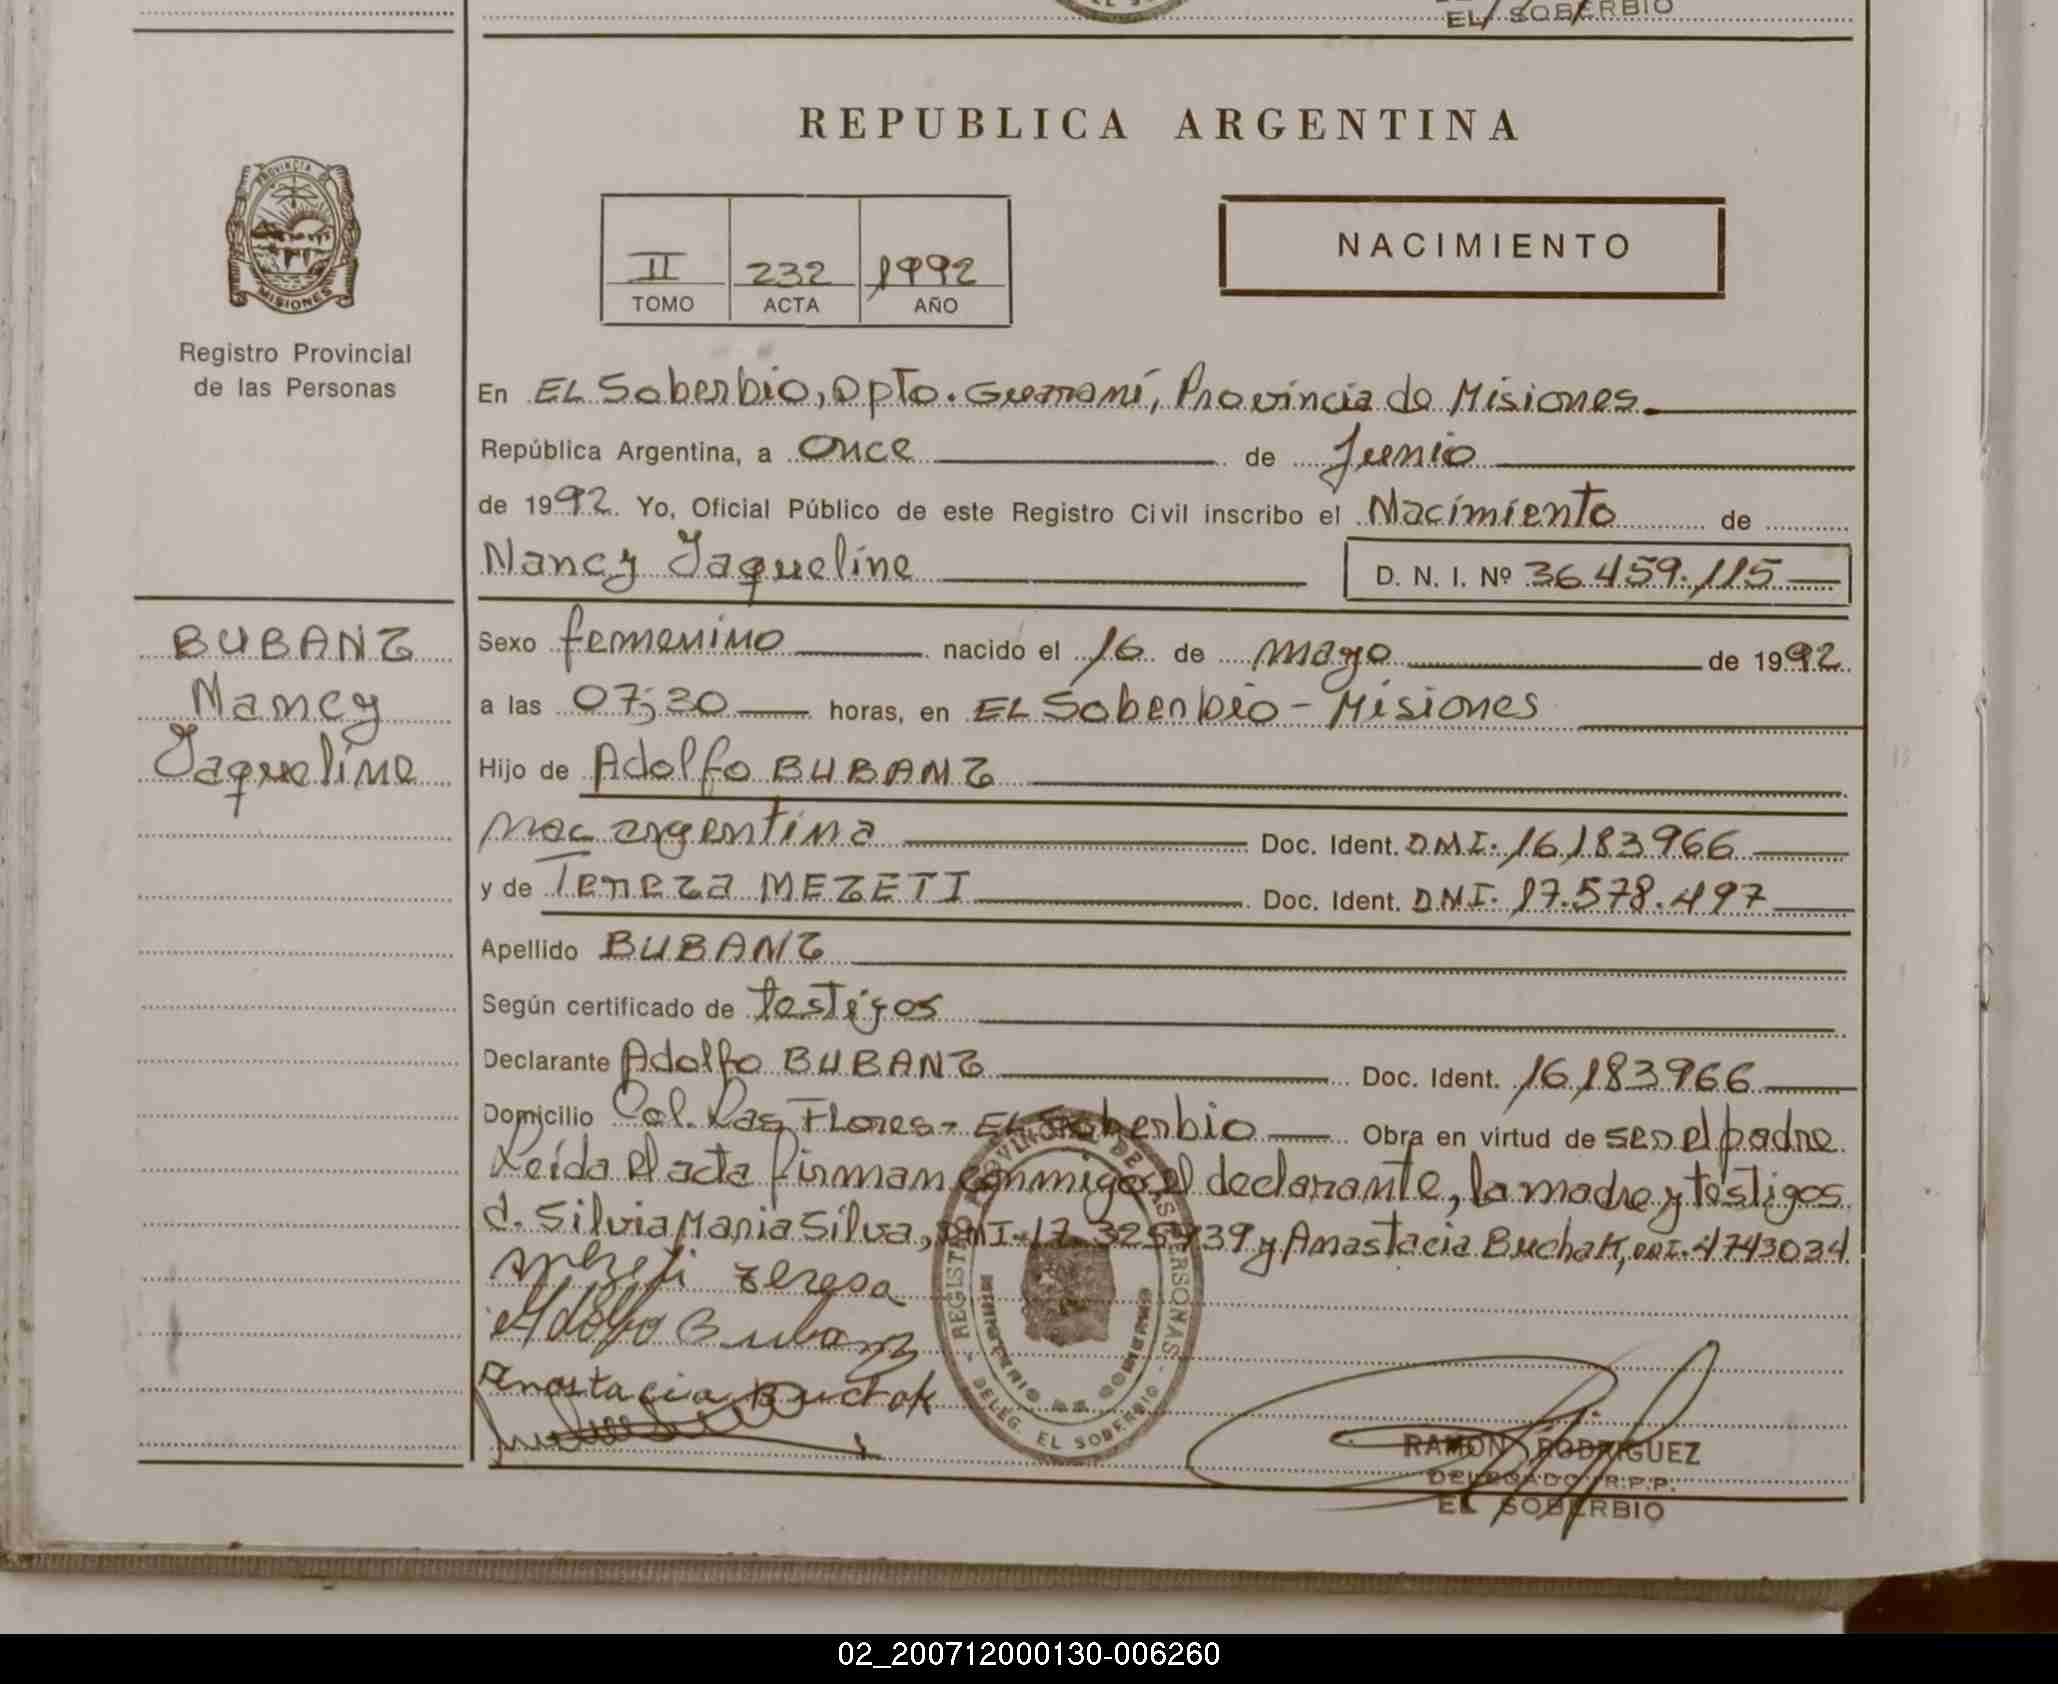 EL SOBERBIO
REPUBLICA ARGENTINA
PROVINCIA DE
MISIONES
Registro Provincial
de las Personas
II 232 1992
TOMO ACTA AÑO
NACIMIENTO
En EL Soberbio, Dpto. Guaraní, Provincia de Misiones.
República Argentina, a Once de Junio
de 1992. Yo, Oficial Público de este Registro Civil inscribo el Nacimiento de
Nancy Jaqueline D. N. I. Nº 36.459.115
BUBANZ
Nancy
Jaqueline
Sexo femenino nacido el 16 de mayo de 1992
a las 07;30 horas, en EL Soberbio - Misiones
Hijo de Adolfo BUBANZ
nac argentina Doc. Ident. DNI. 16.183.966
y de Tereza MEZETI Doc. Ident. DNI. 17.578.497
Apellido BUBANZ
Según certificado de testigos
Declarante Adolfo BUBANZ Doc. Ident. 16.183.966
Domicilio Col. Las Flores - EL Soberbio Obra en virtud de ser el padre.
Leída el acta firman conmigo el declarante, la madre y testigos
d. Silvia Maria Silva, DNI. 17.325.939 y Anastacia Buchak, DNI. 4743034.
Mezeti Zeresa
Adolfo Bubanz
Anastacia Buchak
REGISTRO PROVINCIAL DE LAS PERSONAS
MINISTERIO DE GOBIERNO
DELEG. EL SOBERBIO
RAMON RODRIGUEZ
DELEGADO R.P.P.
EL SOBERBIO
02_200712000130-006260